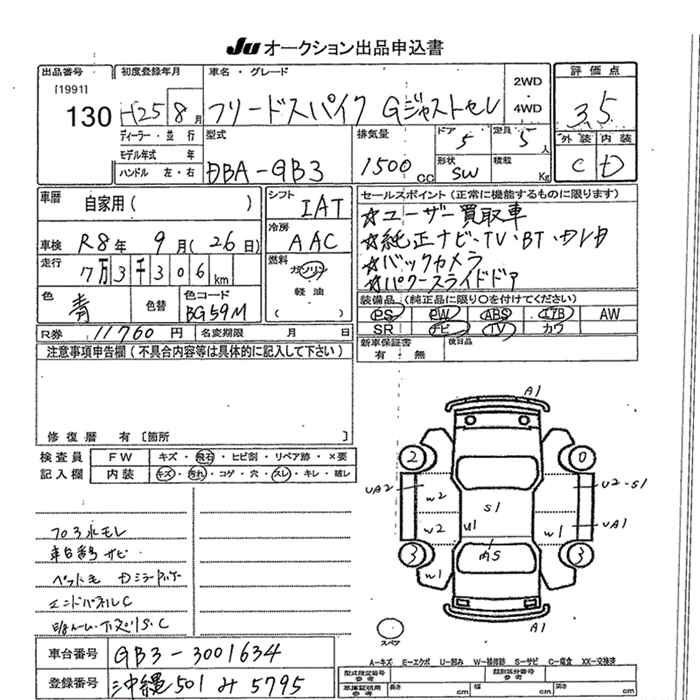 JU オークション出品申込書
出品番号
[1991]
130
初度登録年月
H25 8月
ディーラー・並行
モデル年式 年
ハンドル 左・右
車名・グレード
フリードスパイク Gジャストセレ
2WD
4WD
評価点
3.5
外装 内装
C D
型式
DBA-GB3
排気量
1500 cc
ドア
5
定員
5人
形状
SW
積載
Kg
車歴
自家用( )
車検 R8年 9月(26日)
走行
7万3千306km
色
青
色替
色コード
BG59M
シフト
IAT
冷房
AAC
燃料
ガソリン
軽油
( )
R券 11760円 名変期限 月 日
セールスポイント(正常に機能するものに限ります)
☆ユーザー買取車
☆純正ナビ・TV・BT・
☆バックカメラ
☆パワースライドドア
装備品(純正品に限り○を付けてください)
PS PW ABS エアB AW
SR ナビ TV カワ
新車保証書
有 無
後日品
注意事項申告欄(不具合内容等は具体的に記入して下さい)
修復歴 有[箇所 ]
検査員
記入欄
FW キズ・飛石・ヒビ割・リペア跡・×要
内装 キズ・汚れ・コゲ・穴・スレ・キレ・破レ
車台番号サビ
ペット毛
エンドパネルC
A1
2
0
UA2
W2
S1
U2-S1
W2
U1
W1
UA1
内S
3
W1
3
A1
スペア
A-キズ E-エクボ U-凹み W-補修跡 S-サビ C-腐食 XX-交換済
車台番号 GB3-3001634
登録番号 沖縄501み5795
型式指定番号
参考
類別区分番号
参考
車庫証明用
参考
長さ cm
幅 cm
高さ cm